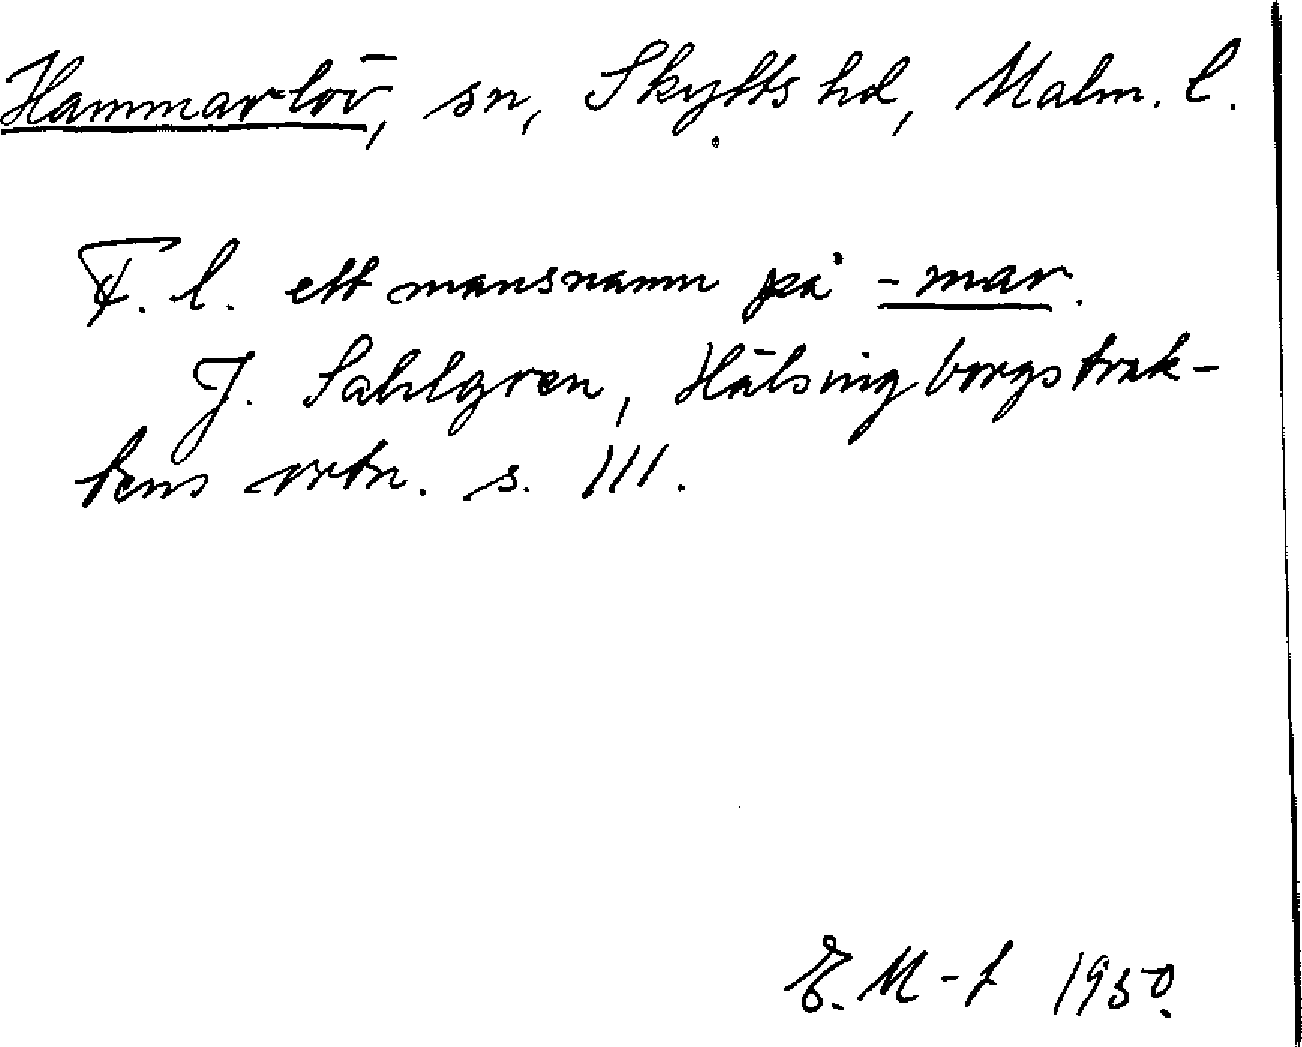 Hammarlöv, sn, Skytts hd, Malm. l.
F. l. ett mansnamn på -mar.
J. Sahlgren, Hälsingborgstrak-
tens ortn. s. 111.
E. M-f 1950.